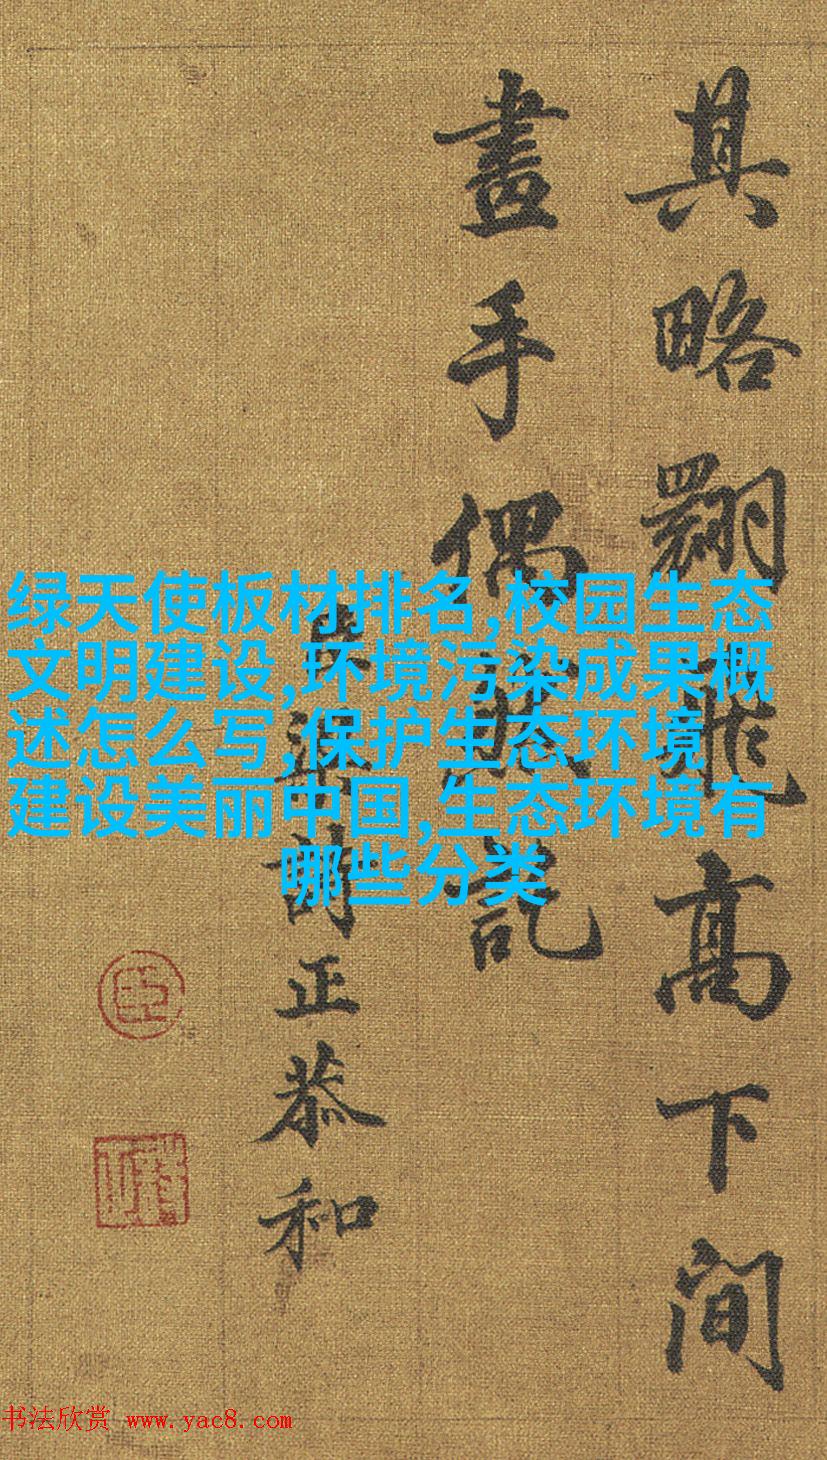 其略翾飛高下間
畫手偶記
臣梁詩正恭和
臣
绿天使板材排名,校园生态
文明建设,环境污染成果概
述怎么写,保护生态环境
建设美丽中国,生态环境有
哪些分类
书法欣赏 www.yac8.com